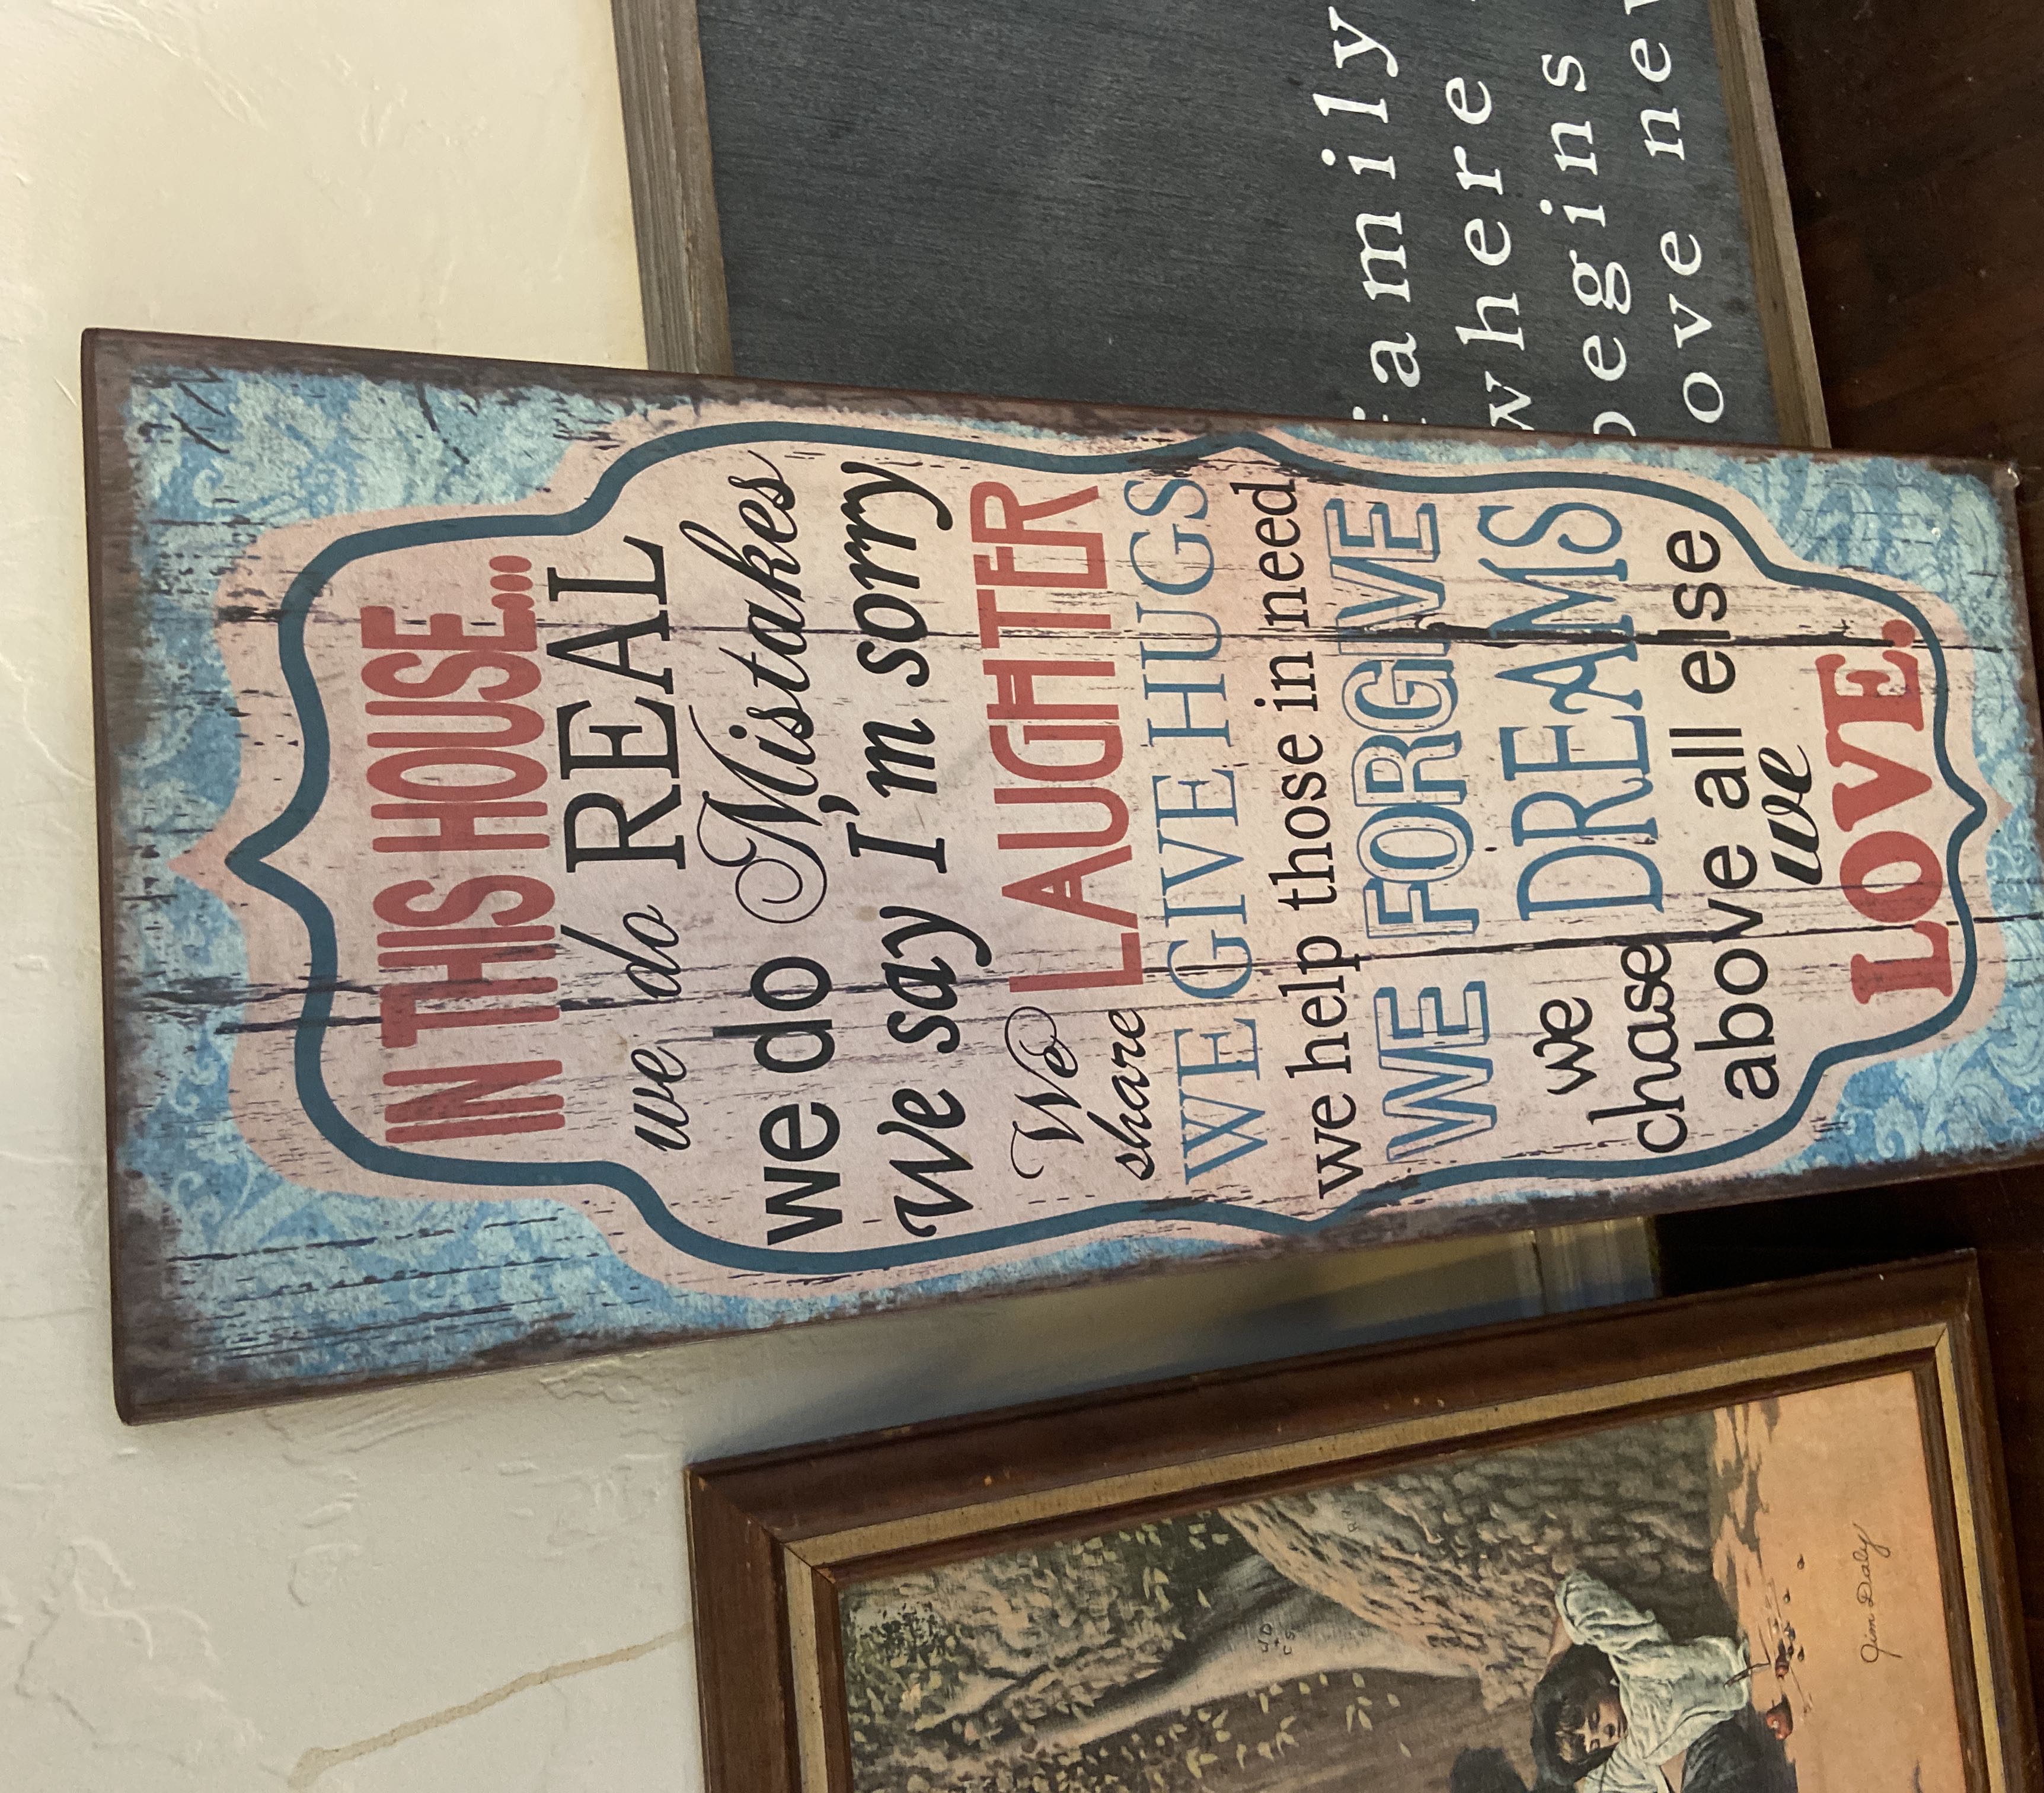 IN THIS HOUSE...
we do REAL
we do Mistakes
We say I'm sorry
We share LAUGHTER
WE GIVE HUGS
we help those in need
WE FORGIVE
we chase DREAMS
above all else
we
LOVE.
where
Jim Daly